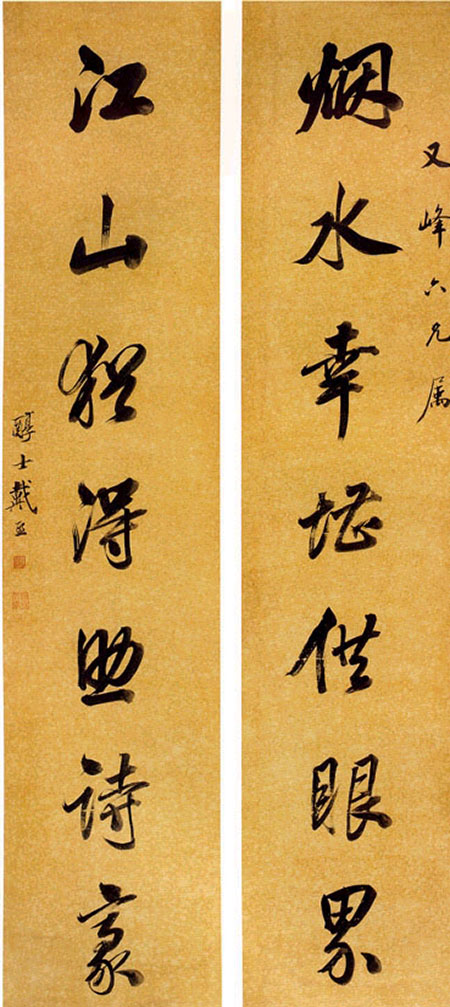 又峰六兄属
烟水幸堪供眼界
江山犹得助诗豪
醇士戴熙